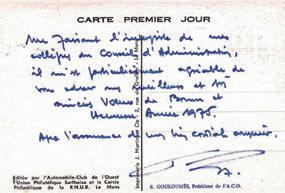 CARTE PREMIER JOUR
Me faisant l'interprète de mes
collègues du Conseil d'Administration,
il m'est particulièrement agréable de
vous adresser mes meilleurs et
sincères Vœux de Bonne et
Heureuse Année 1975.
Avec l'assurance de mon très cordial souvenir.
Editée par l'Automobile-Club de l'Ouest
l'Union Philatélique Sarthoise et le Cercle
Philatélique de la R.N.U.R. Le Mans
R. GOULOUMÈS, Président de l'A.C.O.